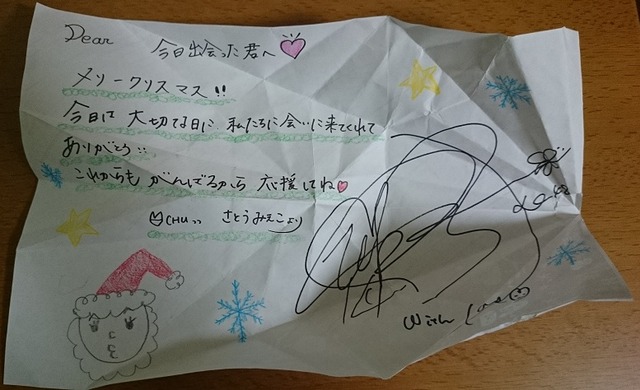 Dear 今日出会った君へ
メリークリスマス!!
今日は大切な日に私たちに会いに来てくれて
ありがとう!!
これからもがんばるから応援してね
CHU
さとうみえこより
With Love